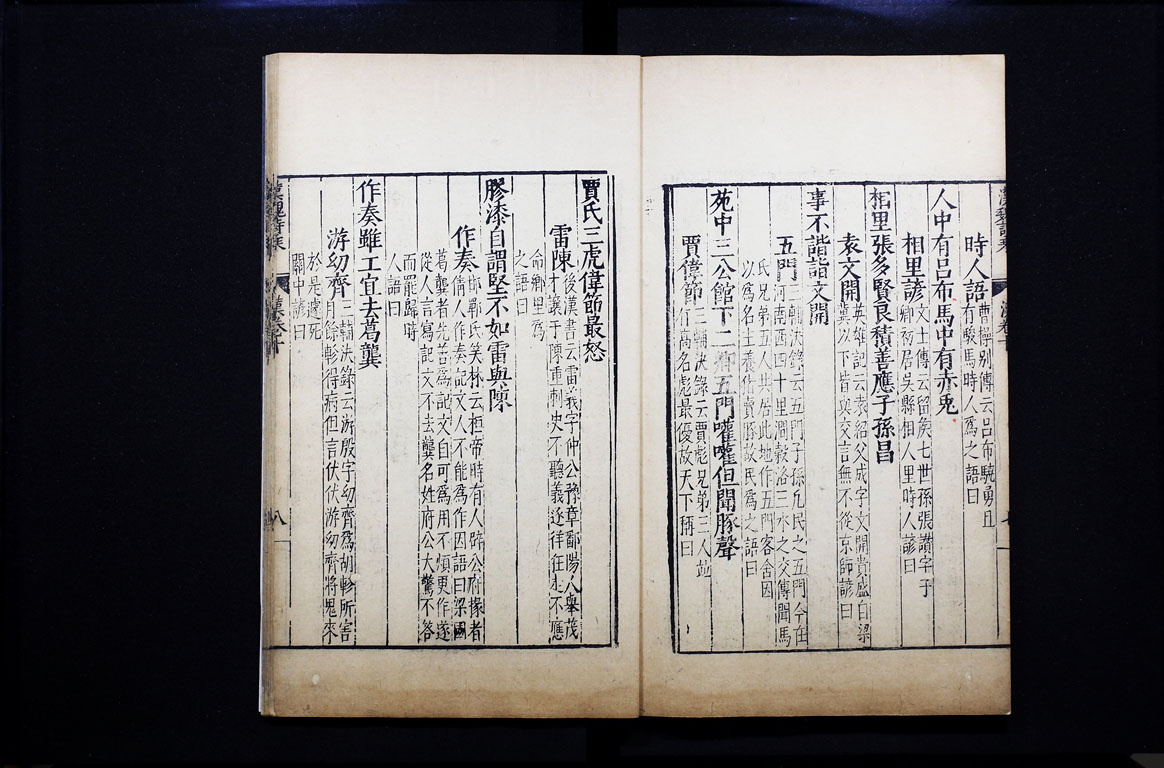 時人語
曹操別傳云呂布驍勇且
有駿馬時人爲之語曰
人中有呂布馬中有赤兎
相里諺
文士傳云留侯七世孫張讚字子
卿初居吳縣相人里時人諺曰
相里張多賢良積善應子孫昌
袁文開
英雄記云袁紹父成字文開貴盛自梁
冀以下皆與交言無不從京師諺曰
事不諧詣文開
五門
三輔決錄云五門子孫凡民之五門今在
河南西四十里澗穀洛三水之交傳聞馬
氏兄弟五人共居此地作五門客舍因
以爲名主養猪賣豚故民爲之語曰
苑中三公館下二卿五門嚾嚾但聞豚聲
賈偉節
三輔決錄云賈彪兄弟三人並
有高名彪最優故天下稱曰
賈氏三虎偉節最怒
雷陳
後漢書云雷義字仲公豫章鄱陽人舉茂
才讓于陳重刺史不聽義遂徉狂走不應
命鄉里爲
之語曰
膠漆自謂堅不如雷與陳
作奏
邯鄲氏笑林云桓帝時有人辟公府掾者
倩人作奏記文人不能爲作因語曰梁國
葛龔者先善爲記文自可爲用不煩更作遂
從人言寫記文不去龔名姓府公大驚不答
而罷歸時
人語曰
作奏雖工宜去葛龔
游幼齊
三輔決錄云游殷字幼齊爲胡軫所害
月餘軫得病但言伏伏游幼齊將鬼來
於是遂死
關中諺曰
八